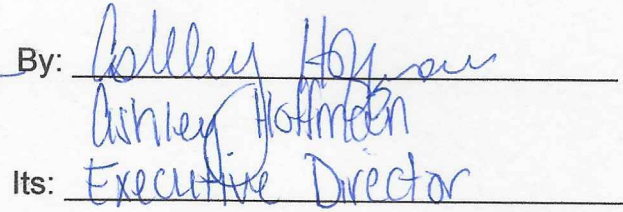 By: Ashley Hoffman
Ashley Hoffmen
Its: Executive Director